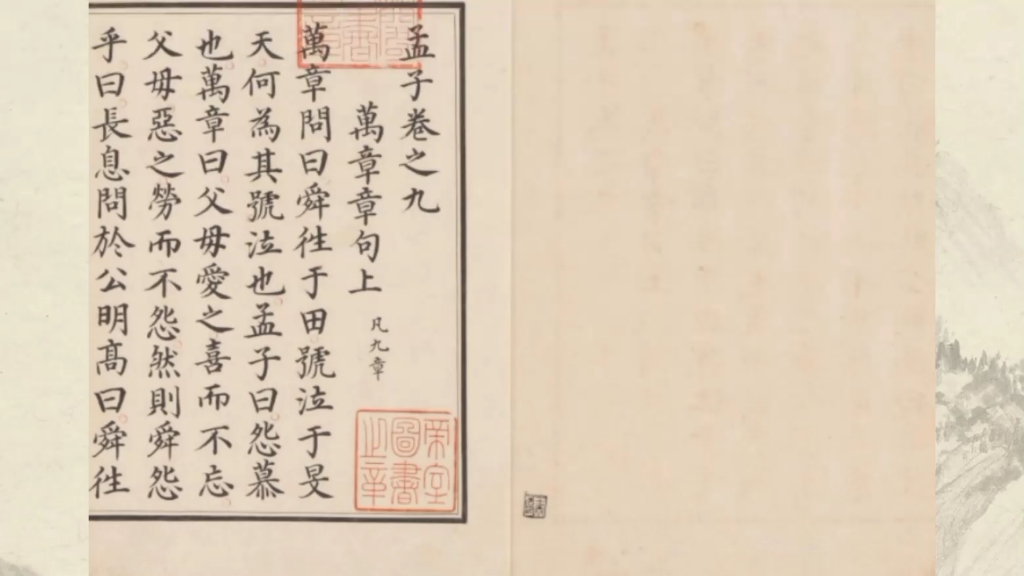 孟子卷之九
萬章章句上 凡九章
萬章問曰舜徃于田號泣于旻
天何為其號泣也孟子曰怨慕
也萬章曰父母愛之喜而不忘
父母惡之勞而不怨然則舜怨
乎曰長息問於公明髙曰舜徃
帝室
圖書
之章